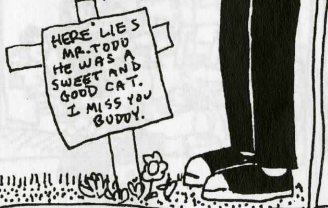 HERE LIES
MR. TODD
HE WAS A
SWEET AND
GOOD CAT.
I MISS YOU
BUDDY.